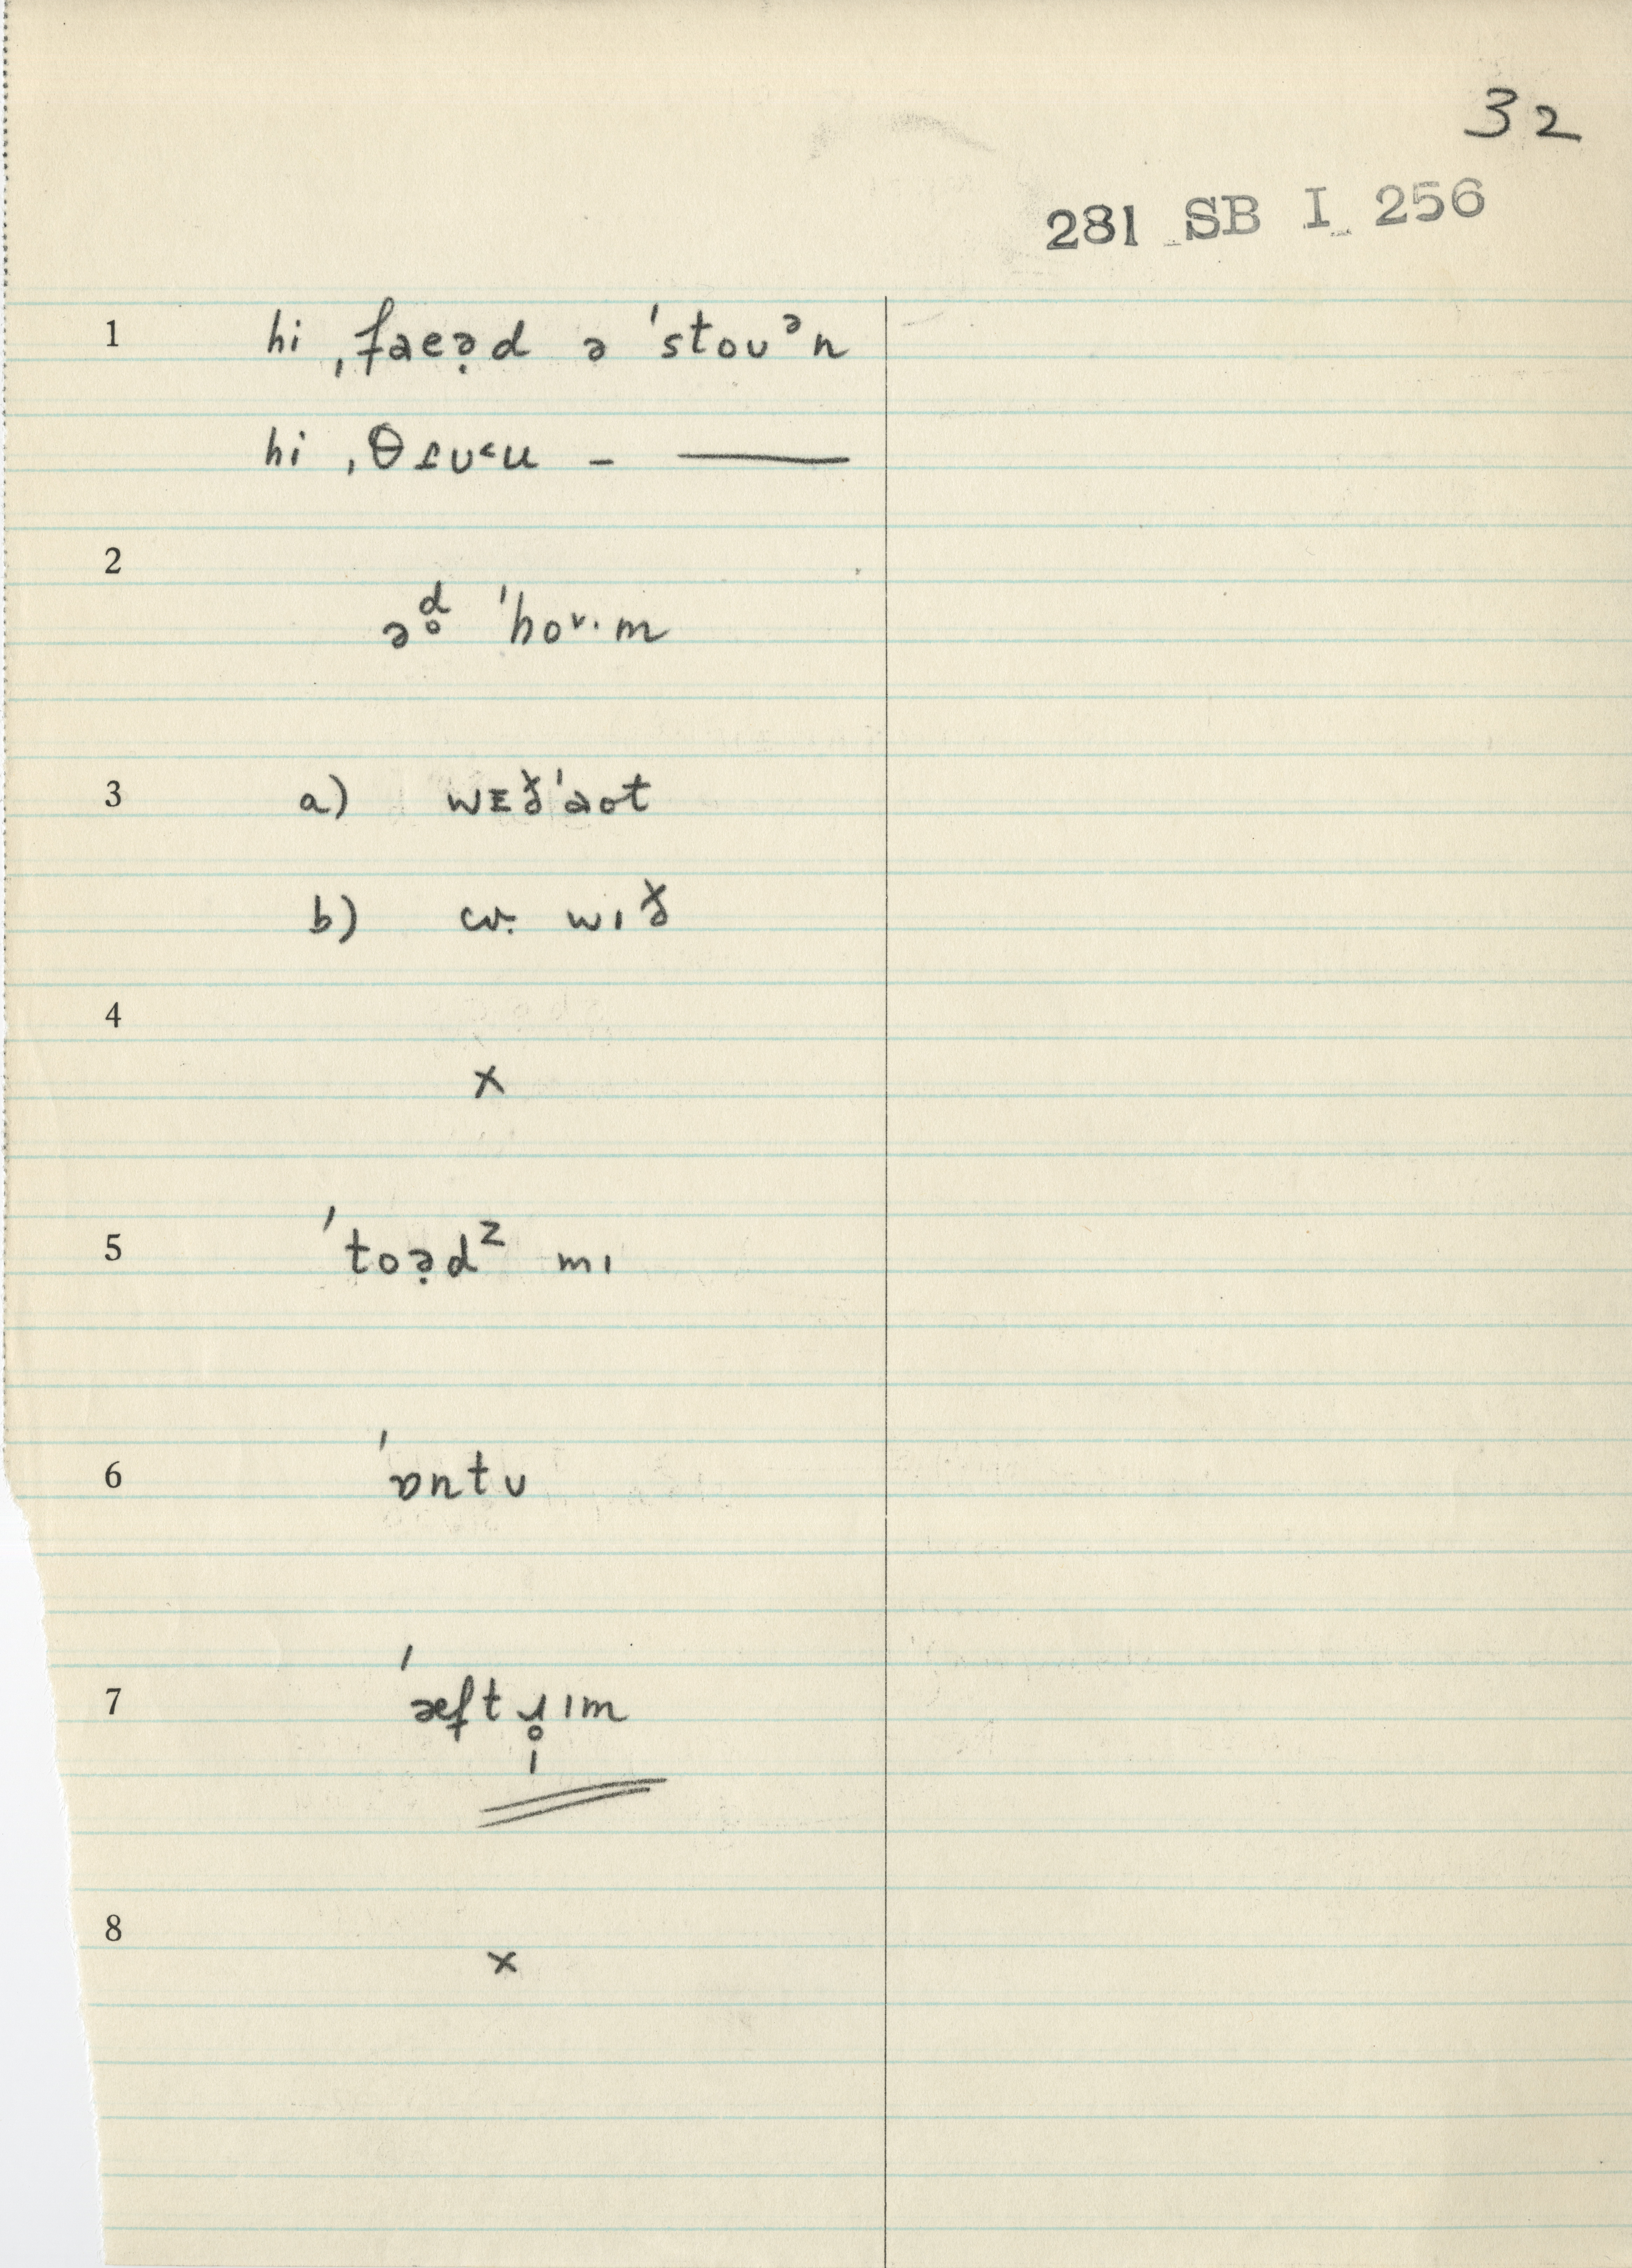 32
281 SB I 256
1 hi ˌfaeə̣d ə ˈstoʊᵊn
hi ˌθ
2
ə ˈhoᴠ·m
3 a) wɪðˈaot
b) wɪð
4
x
5 ˈtoə̣dᶻ mɪ
6 ˈɒntʊ
7 ˈæft ɪm
8
x